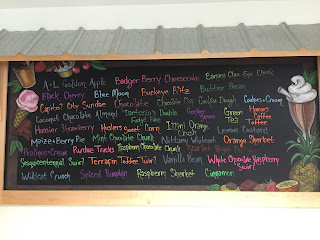 A+L Golden Apple Badger Berry Cheesecake Banana Choc. Chip Chunk
Black Cherry Blue Moon Buckeye Blitz Butter Pecan
Capitol City Sundae Chocolate Chocolate Chip Cookie Dough Cookies+Cream
Coconut Chocolate Almond Fudge Pike Coffee Green Tea Coffee Toffee
Hoosier Strawberry Huskers Corn Illini Orange Lemon Custard
Maize+Berry Pie Mint Chocolate Chunk Nittany Whiteout Orange Sherbet
Pralines+Cream Purdue Tracks Raspberry Chocolate Chunk Scarlet
Sesquicentennial Swirl Terrapin Toddee Twirl Vanilla Bean White Chocolate Raspberry Swirl
Wildcat Crunch Spiced Pumpkin Raspberry Sherbet Cinnamon